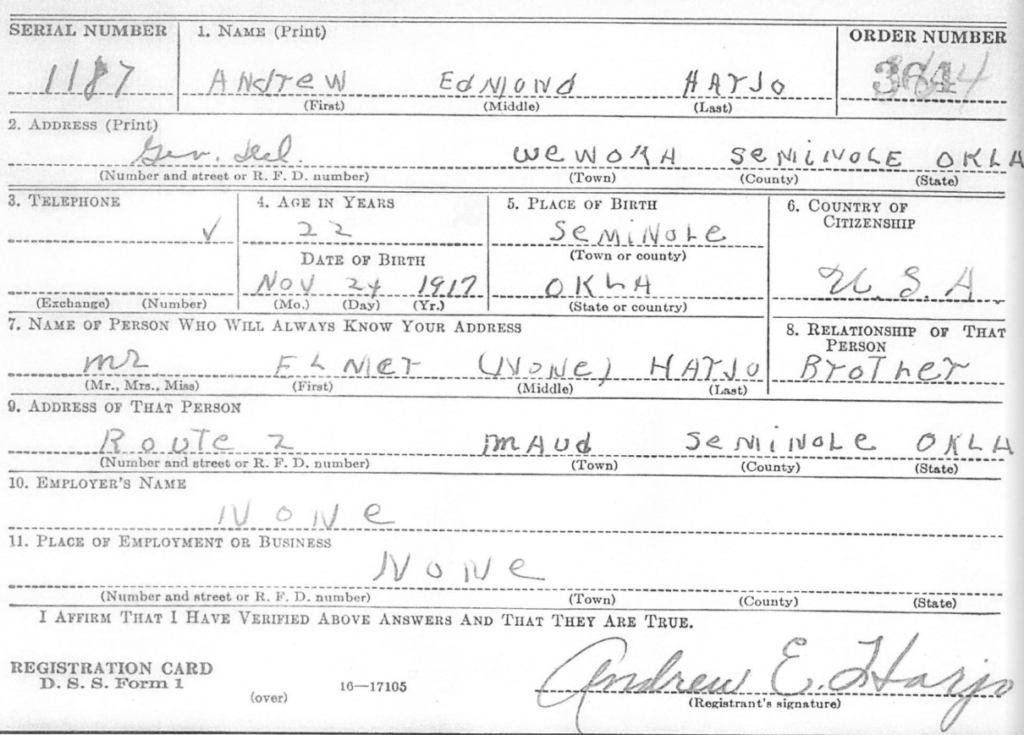 SERIAL NUMBER 1. NAME (Print) ORDER NUMBER
1187 ANdreW EdMoNd HArJo
(First) (Middle) (Last)
2. ADDRESS (Print)
Gen. Del. WeWoKA SeMiNoLE OKLA
(Number and street or R. F. D. number) (Town) (County) (State)
3. TELEPHONE 4. AGE IN YEARS 5. PLACE OF BIRTH 6. COUNTRY OF CITIZENSHIP
✓ 22 SeMiNoLe
DATE OF BIRTH (Town or county)
Nov 24 1917 OKLA U. S. A.
(Exchange) (Number) (Mo.) (Day) (Yr.) (State or country)
7. NAME OF PERSON WHO WILL ALWAYS KNOW YOUR ADDRESS 8. RELATIONSHIP OF THAT PERSON
Mr ELMer (NoNe) HArJo BroTher
(Mr., Mrs., Miss) (First) (Middle) (Last)
9. ADDRESS OF THAT PERSON
RouTe 2 MAud SeMiNoLe OKLA
(Number and street or R. F. D. number) (Town) (County) (State)
10. EMPLOYER'S NAME
NoNe
11. PLACE OF EMPLOYMENT OR BUSINESS
NoNe
(Number and street or R. F. D. number) (Town) (County) (State)
I AFFIRM THAT I HAVE VERIFIED ABOVE ANSWERS AND THAT THEY ARE TRUE.
REGISTRATION CARD
D. S. S. Form 1 (over) 16—17105 Andrew E. Harjo
(Registrant's signature)